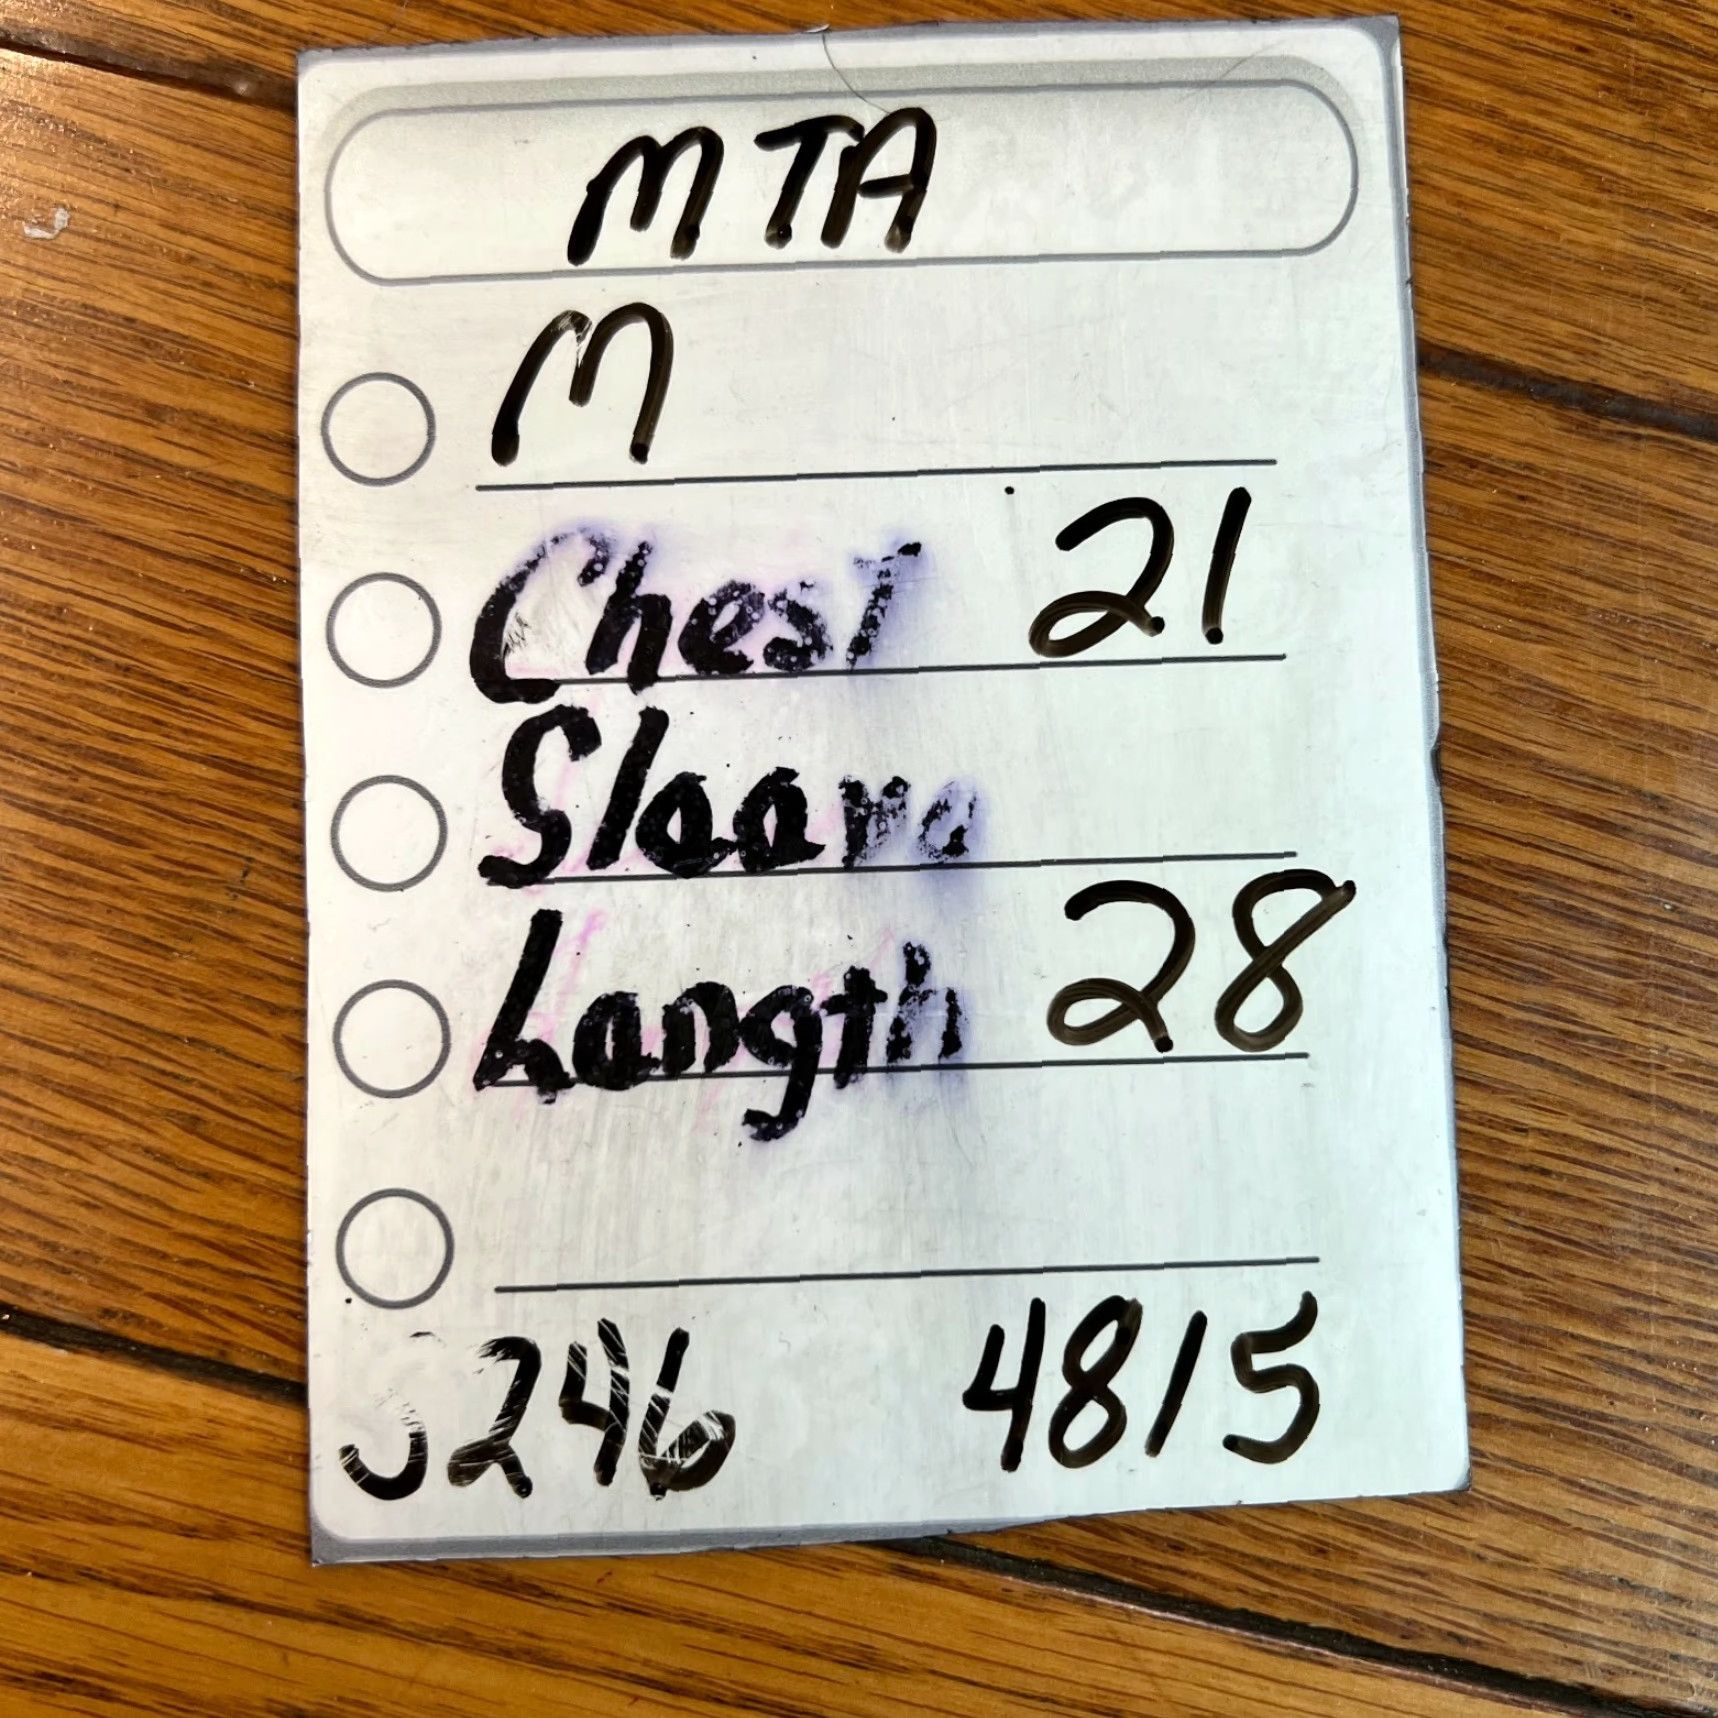 MTA
M
Chest 21
Sleeve
Length 28
J246 4815